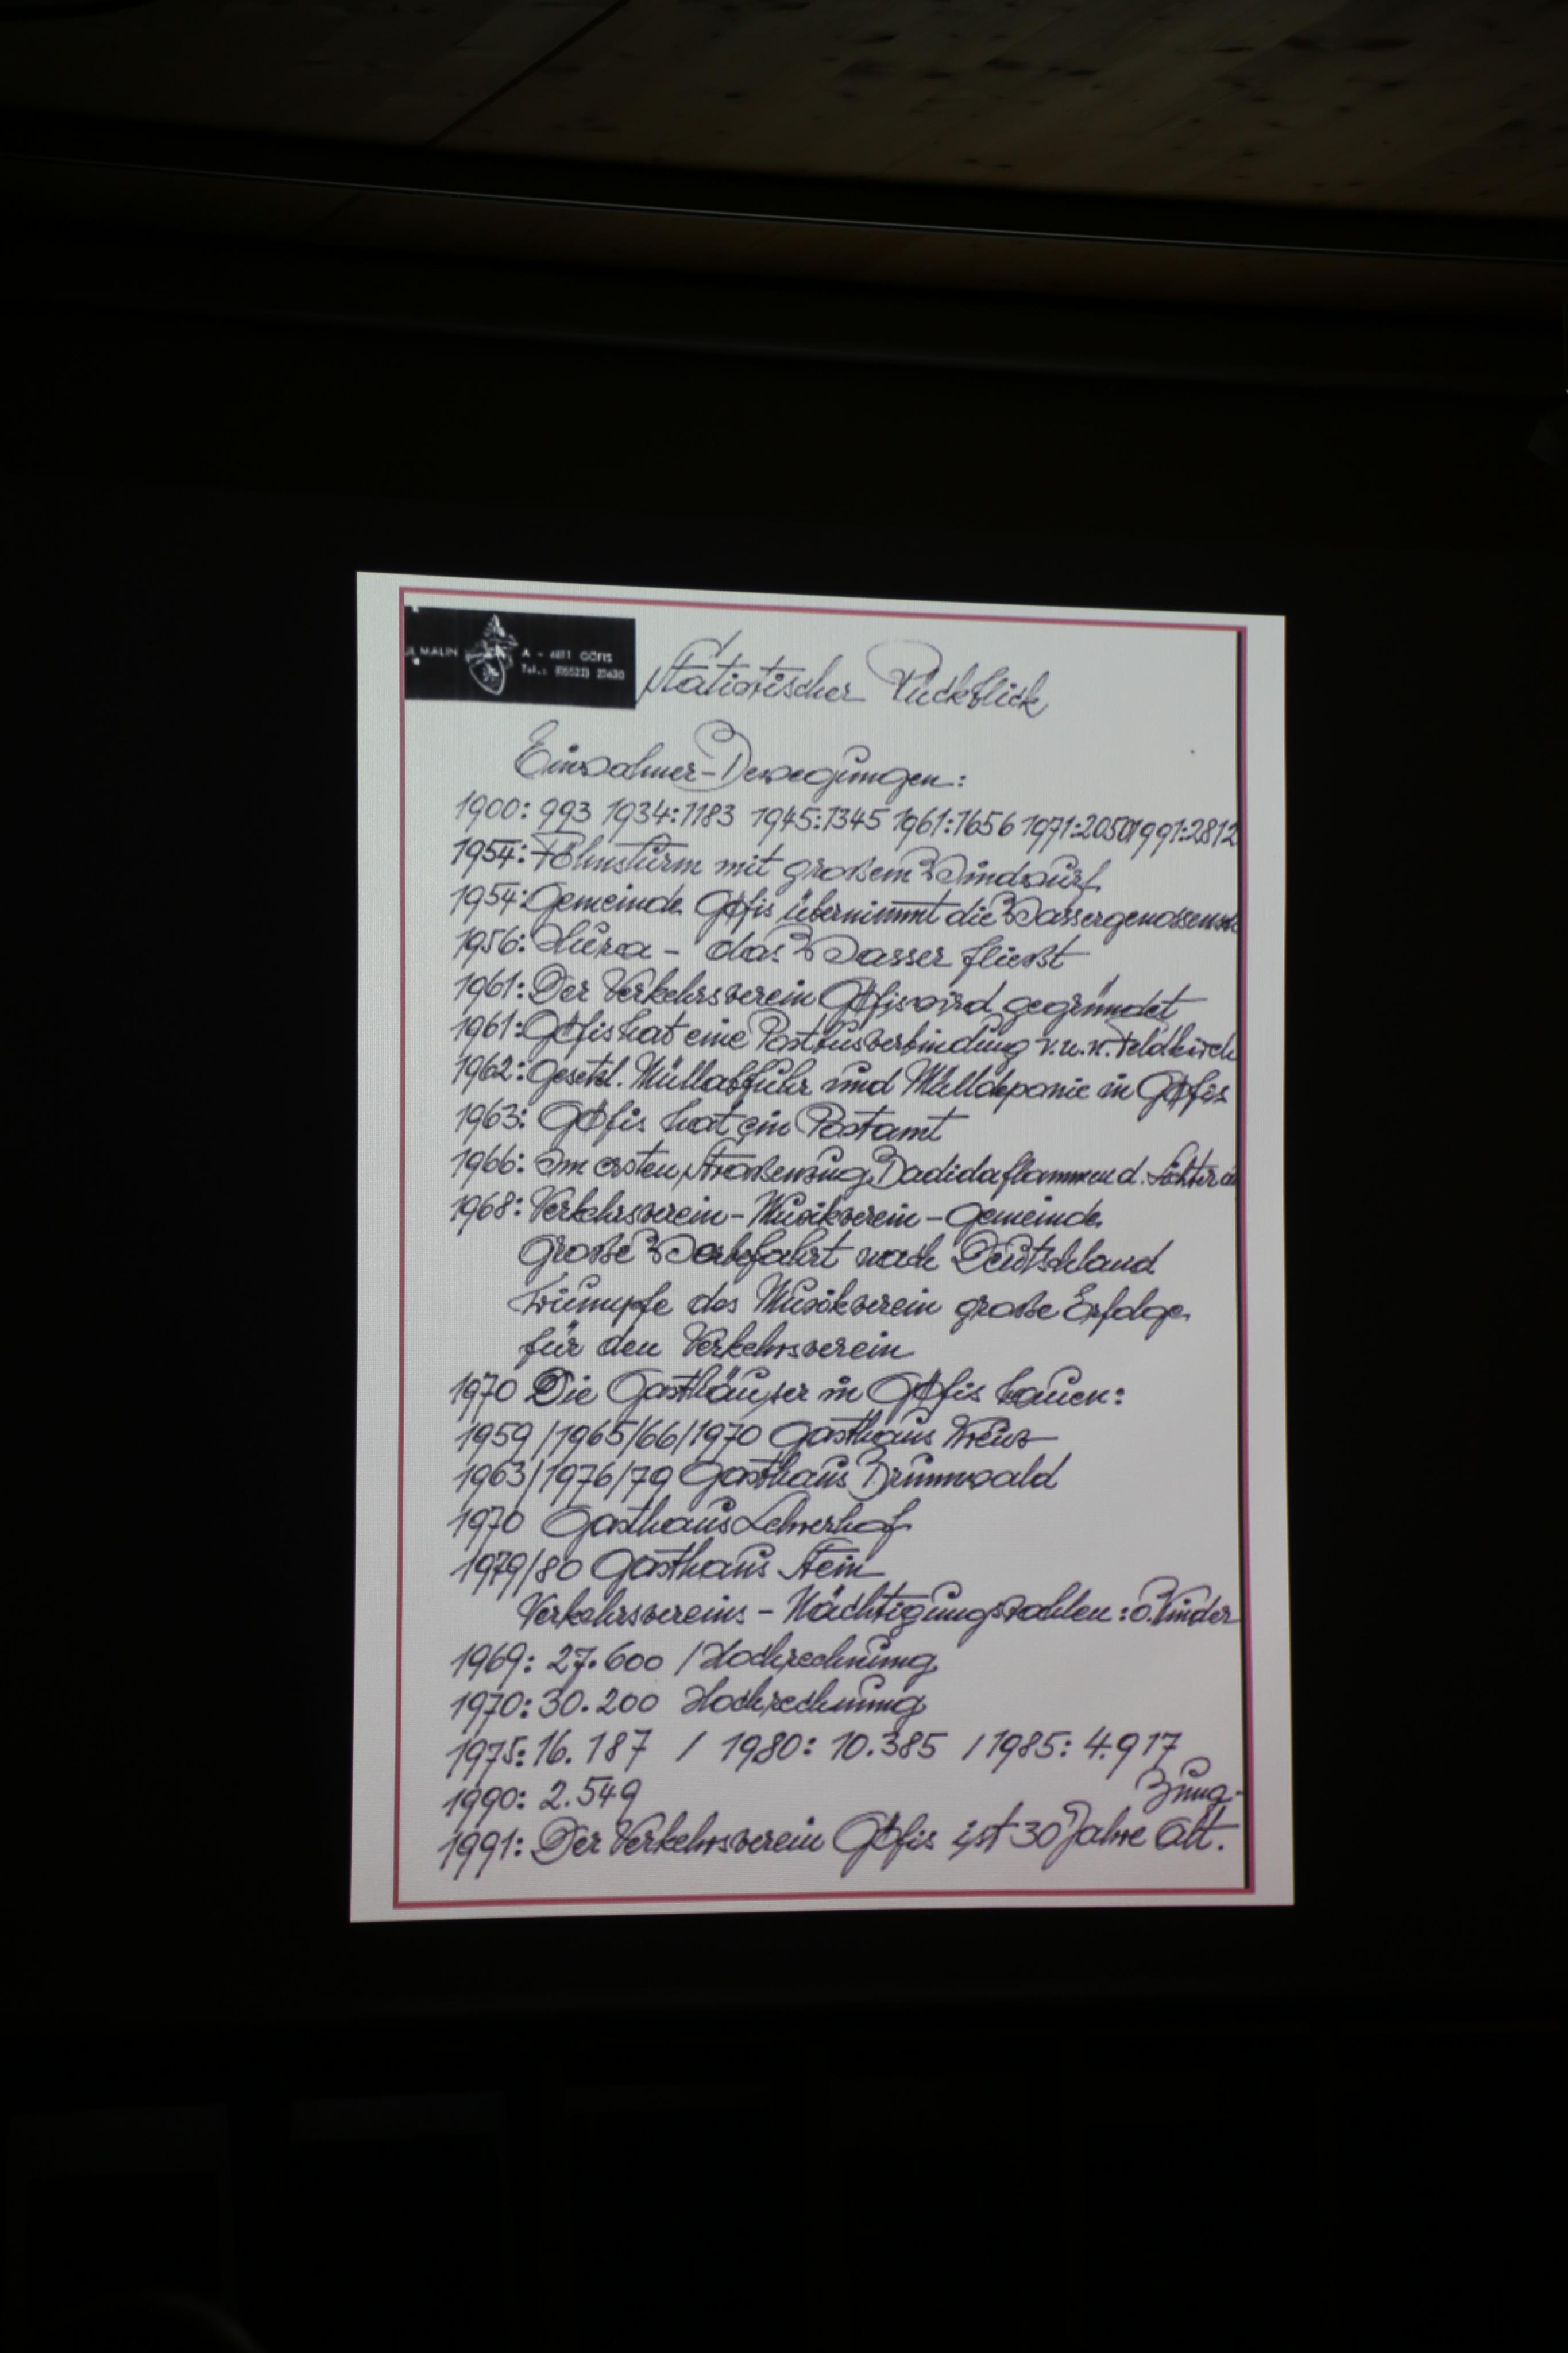 MALIN
A - 6811 GÖFIS
Tel.:
Statistischer Rückblick
Einwohner-Bewegungen:
1900: 993 1934:1183 1945:1345 1961:1656 1971:2050 1991:2812
1954: Föhnsturm mit großem Windwurf
1954: Gemeinde Göfis übernimmt die Wassergenossensch
1956: Hura - das Wasser fließt
1961: Der Verkehrsverein Göfis wird gegründet
1961: Göfis hat eine Postbusverbindung v.u.n. Feldkirch
1962: Gesetzl. Müllabfuhr und Mülldeponie in Göfis
1963: Göfis hat ein Postamt
1966: Im ersten Straßenzug Badida flammen d. Lichter
1968: Verkehrsverein - Musikverein - Gemeinde
Große Werbefahrt nach Deutschland
Triumpfe des Musikverein große Erfolge
für den Verkehrsverein
1970 Die Gasthäuser in Göfis bauen:
1959/1965/66/1970 Gasthaus Kreuz
1963/1976/79 Gasthaus Brunnwald
1970 Gasthaus Lehrerhof
1979/80 Gasthaus Stein
Verkehrsvereins - Nächtigungszahlen: o. Kinder
1969: 27.600 / Hochrechnung
1970: 30.200 Hochrechnung
1975: 16.187 / 1980: 10.385 / 1985: 4.917
1990: 2.549
1991: Der Verkehrsverein Göfis ist 30 Jahre alt.